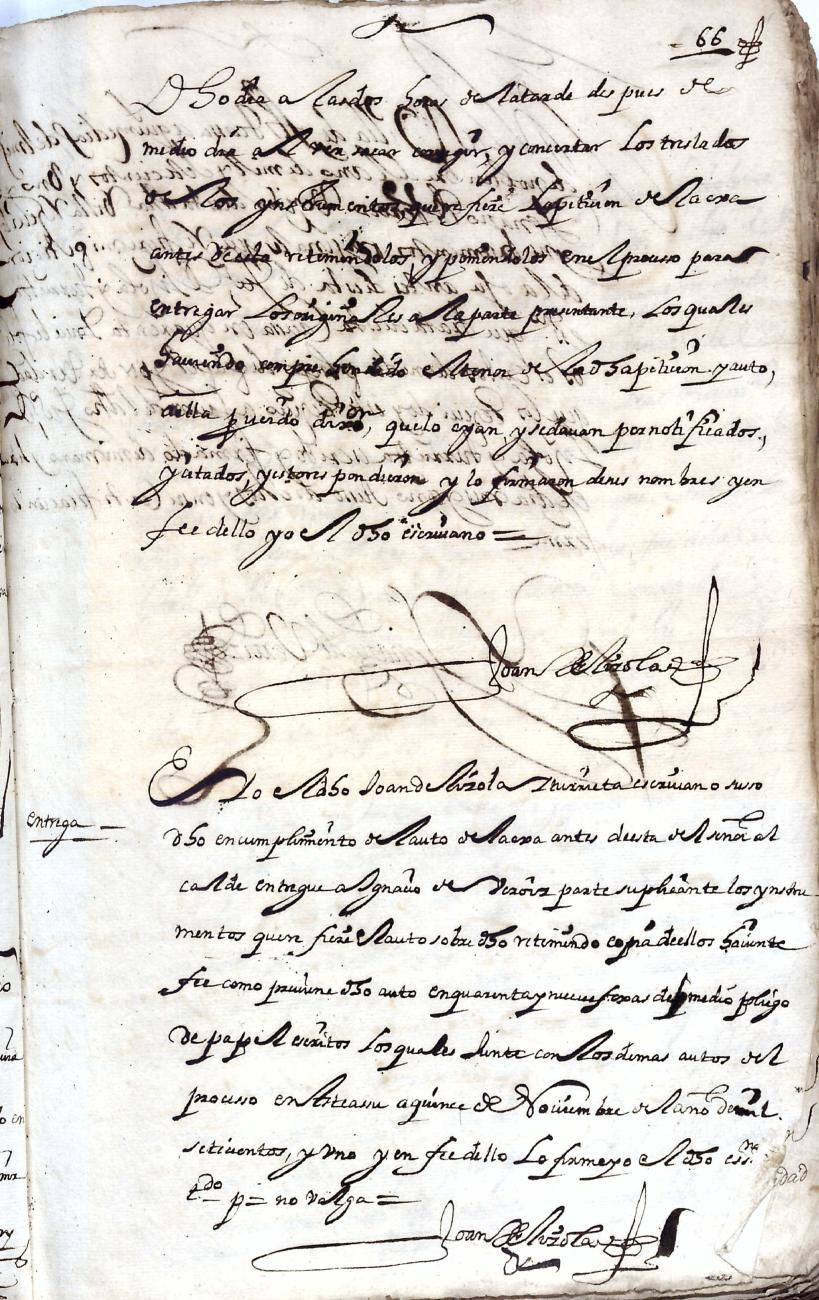 66
Dho dia a las dos horas de la tarde despues de
medio dia al ver sacar corregir, y concertar los treslados
de los ynstrumentos que refiere la peticion de la exa
antes de esta retiniendolos y poniendolos en el processo para
entregar los originales a la parte presentante, los quales
haviendo comprehendido el tenor de la dha peticion y auto,
a ella proveido dixeron, que lo oyan, y se davan por notificados,
y citados, y esto respondieron y lo firmaron de sus nombres y en
fee dello yo el dho escrivano =
Joan de Lizola
Entrega
Yo el dho Joan de Lizola Yturrieta escrivano suso
dho en cumplimiento del auto de la exa antes de esta del señor al
calde entregue a Ignacio de veroiz parte suplicante los ynstru
mentos que refiere el auto sobre dho retiniendo copia de ellos haciente
fee como previene dho auto en quarenta y nueve foxas de medio pliego
de papel escritos los quales junte con los demas autos del
processo en Asteassu a quince de Noviembre del año de mil
setecientos, y uno y en fee dello lo firme yo el dho essno
tdo p = no valga =
Joan de Lizola